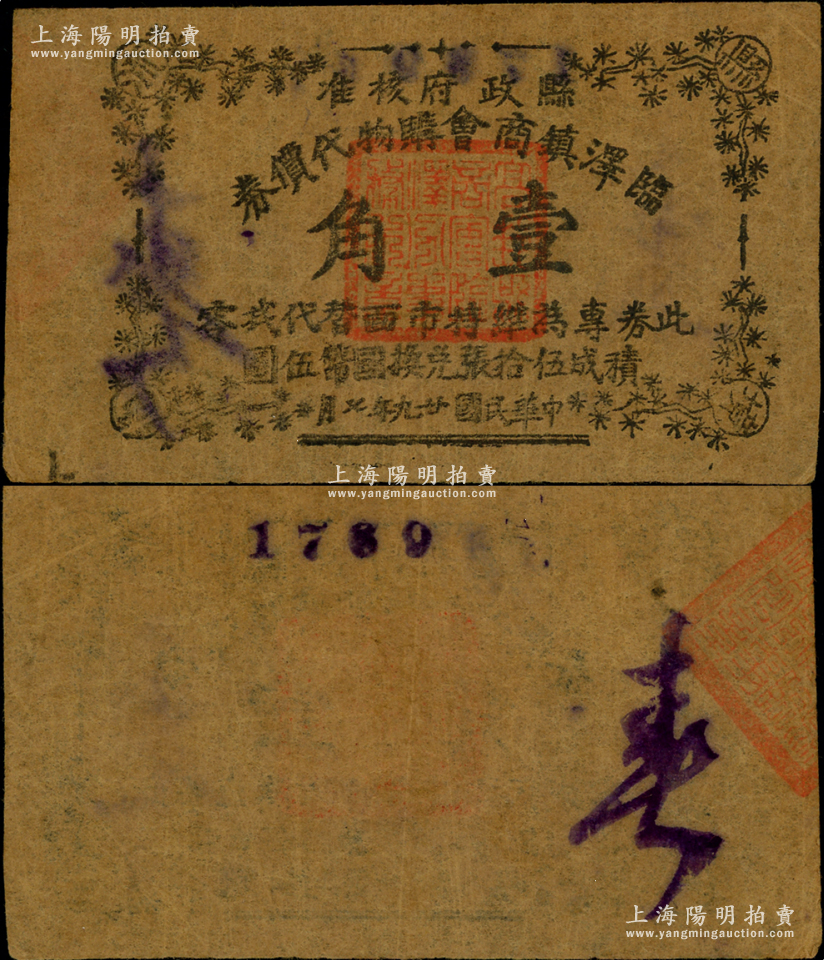 上海陽明拍賣
www.yangmingauction.com
縣
縣政府核准
臨澤鎮商會購物代價券
壹角
此券專為維持市面替代找零
積成伍拾張兌換國幣伍圓
中華民國廿九年七月
上海陽明拍賣
www.yangmingauction.com
1789
上海陽明拍賣
www.yangmingauction.com